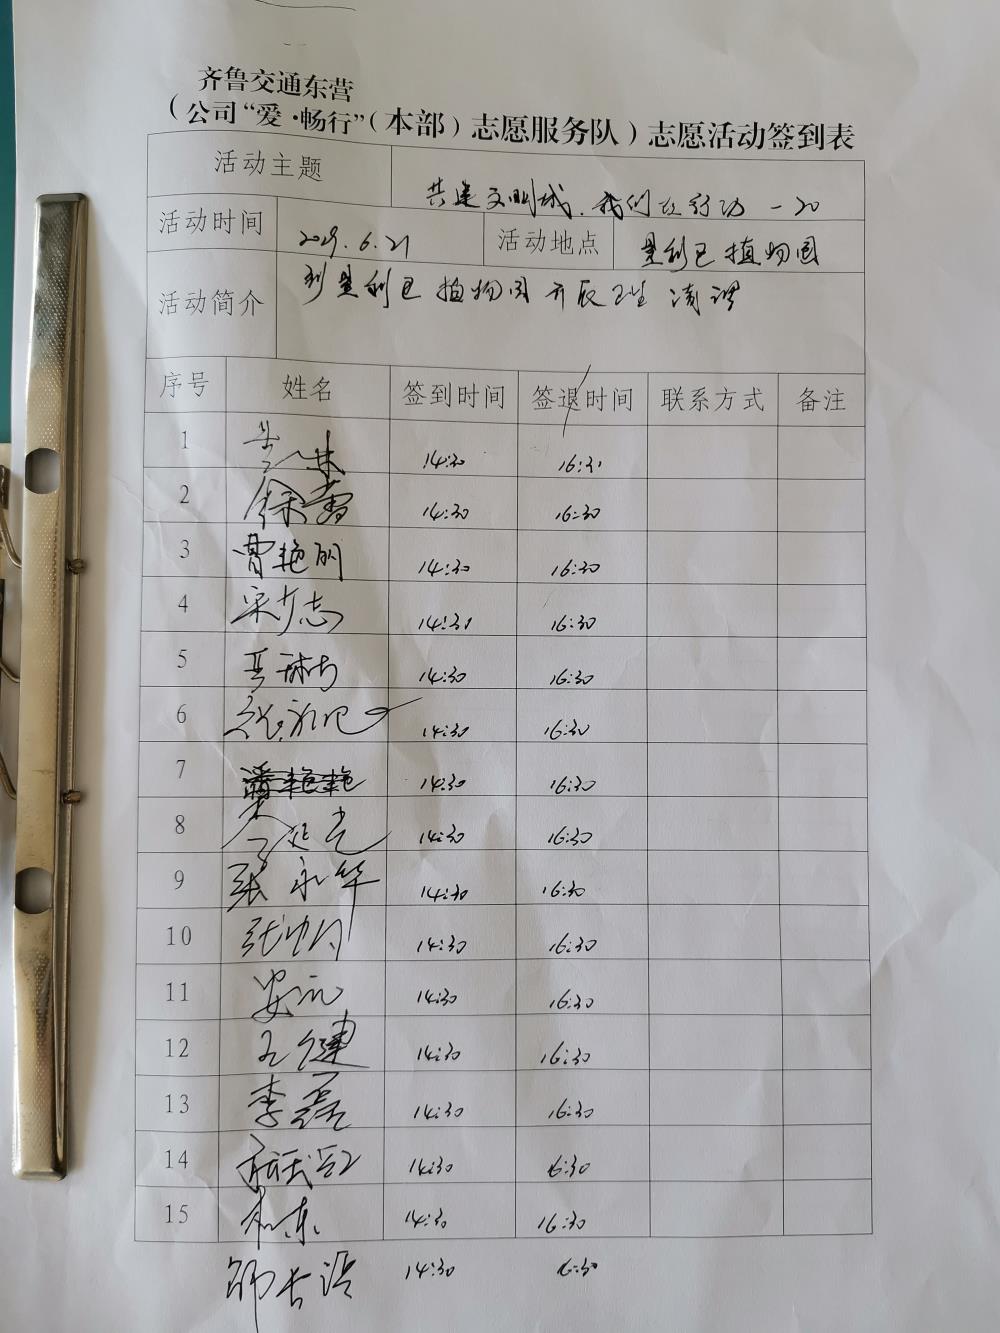 齐鲁交通东营
（公司“爱·畅行”（本部）志愿服务队）志愿活动签到表
活动主题 共建文明城，我们在行动 一20
活动时间 2019.6.21 活动地点 垦利区植物园
活动简介 到垦利区植物园开展卫生清理
序号 姓名 签到时间 签退时间 联系方式 备注
1 14:30 16:30
2 徐蕾 14:30 16:30
3 曹艳丽 14:30 16:30
4 宋志 14:30 16:30
5 14:30 16:30
6 14:30 16:30
7 14:30 16:30
8 14:30 16:30
9 张永华 14:30 16:30
10 张 14:30 16:30
11 安 14:30 16:30
12 王健 14:30 16:30
13 李磊 14:30 16:30
14 14:30 16:30
15 14:30 16:30
14:30 16:30